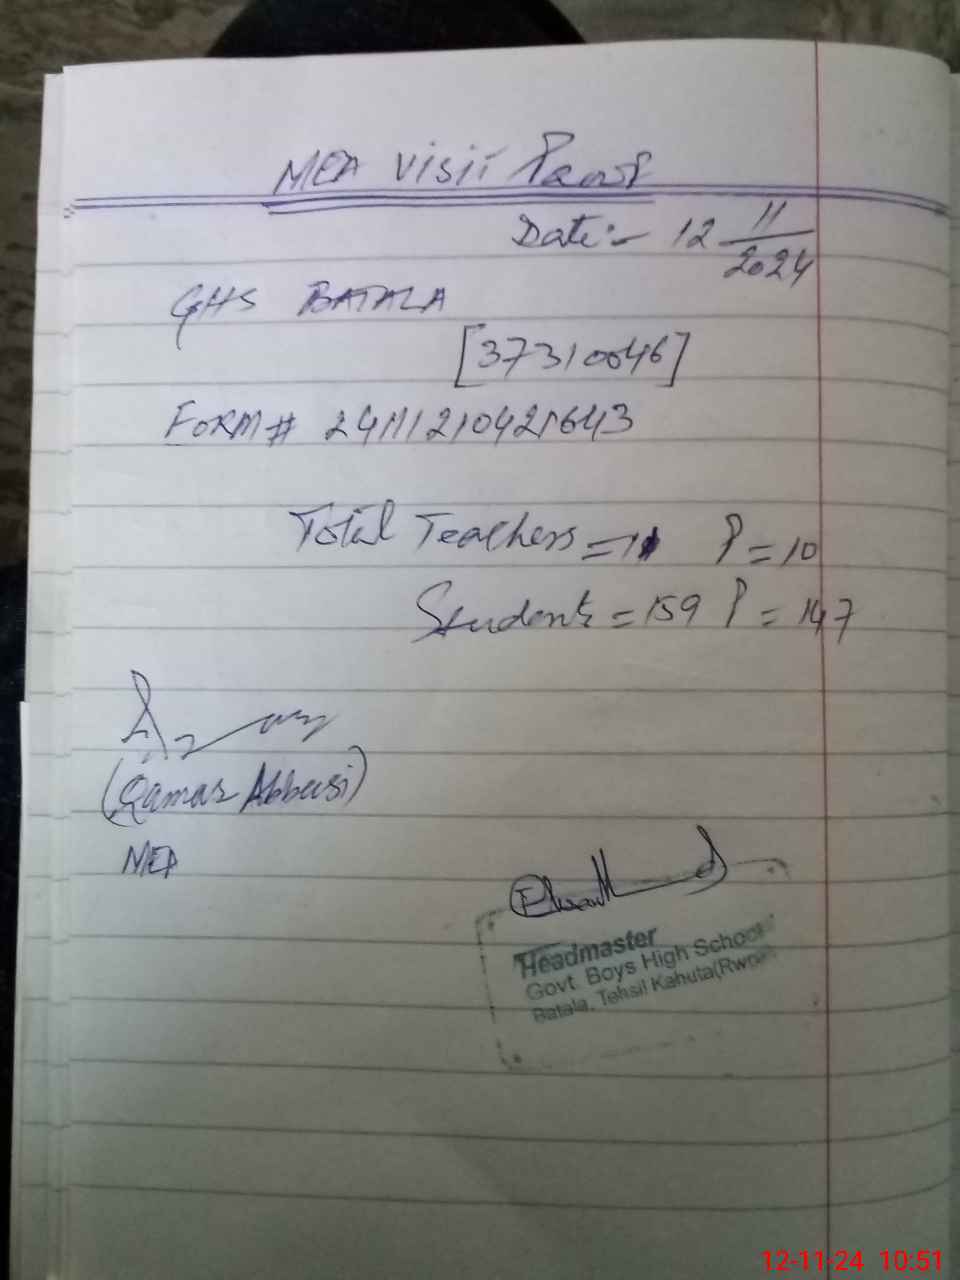 MEA Visit Proof
Date:- 12 11/2024
GHS BATALA
[37310046]
FORM# 24111210421643
Total Teachers = 11 P = 10
Students = 159 P = 147
(Qamar Abbasi)
MEA
Headmaster
Govt. Boys High School
Batala, Tehsil Kahuta(Rwp)
12-11-24 10:51